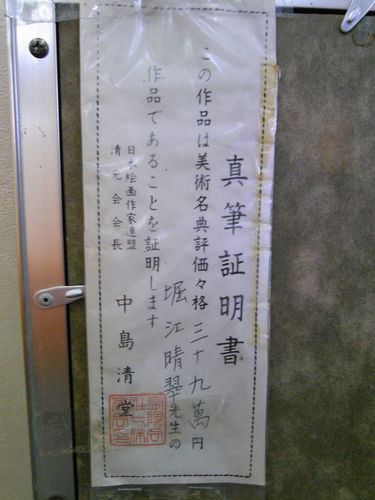 真筆証明書
この作品は美術名典評価々格三十九萬円
堀江晴翠先生の
作品であることを証明します
日本絵画作家連盟
清元会会長
中島清堂